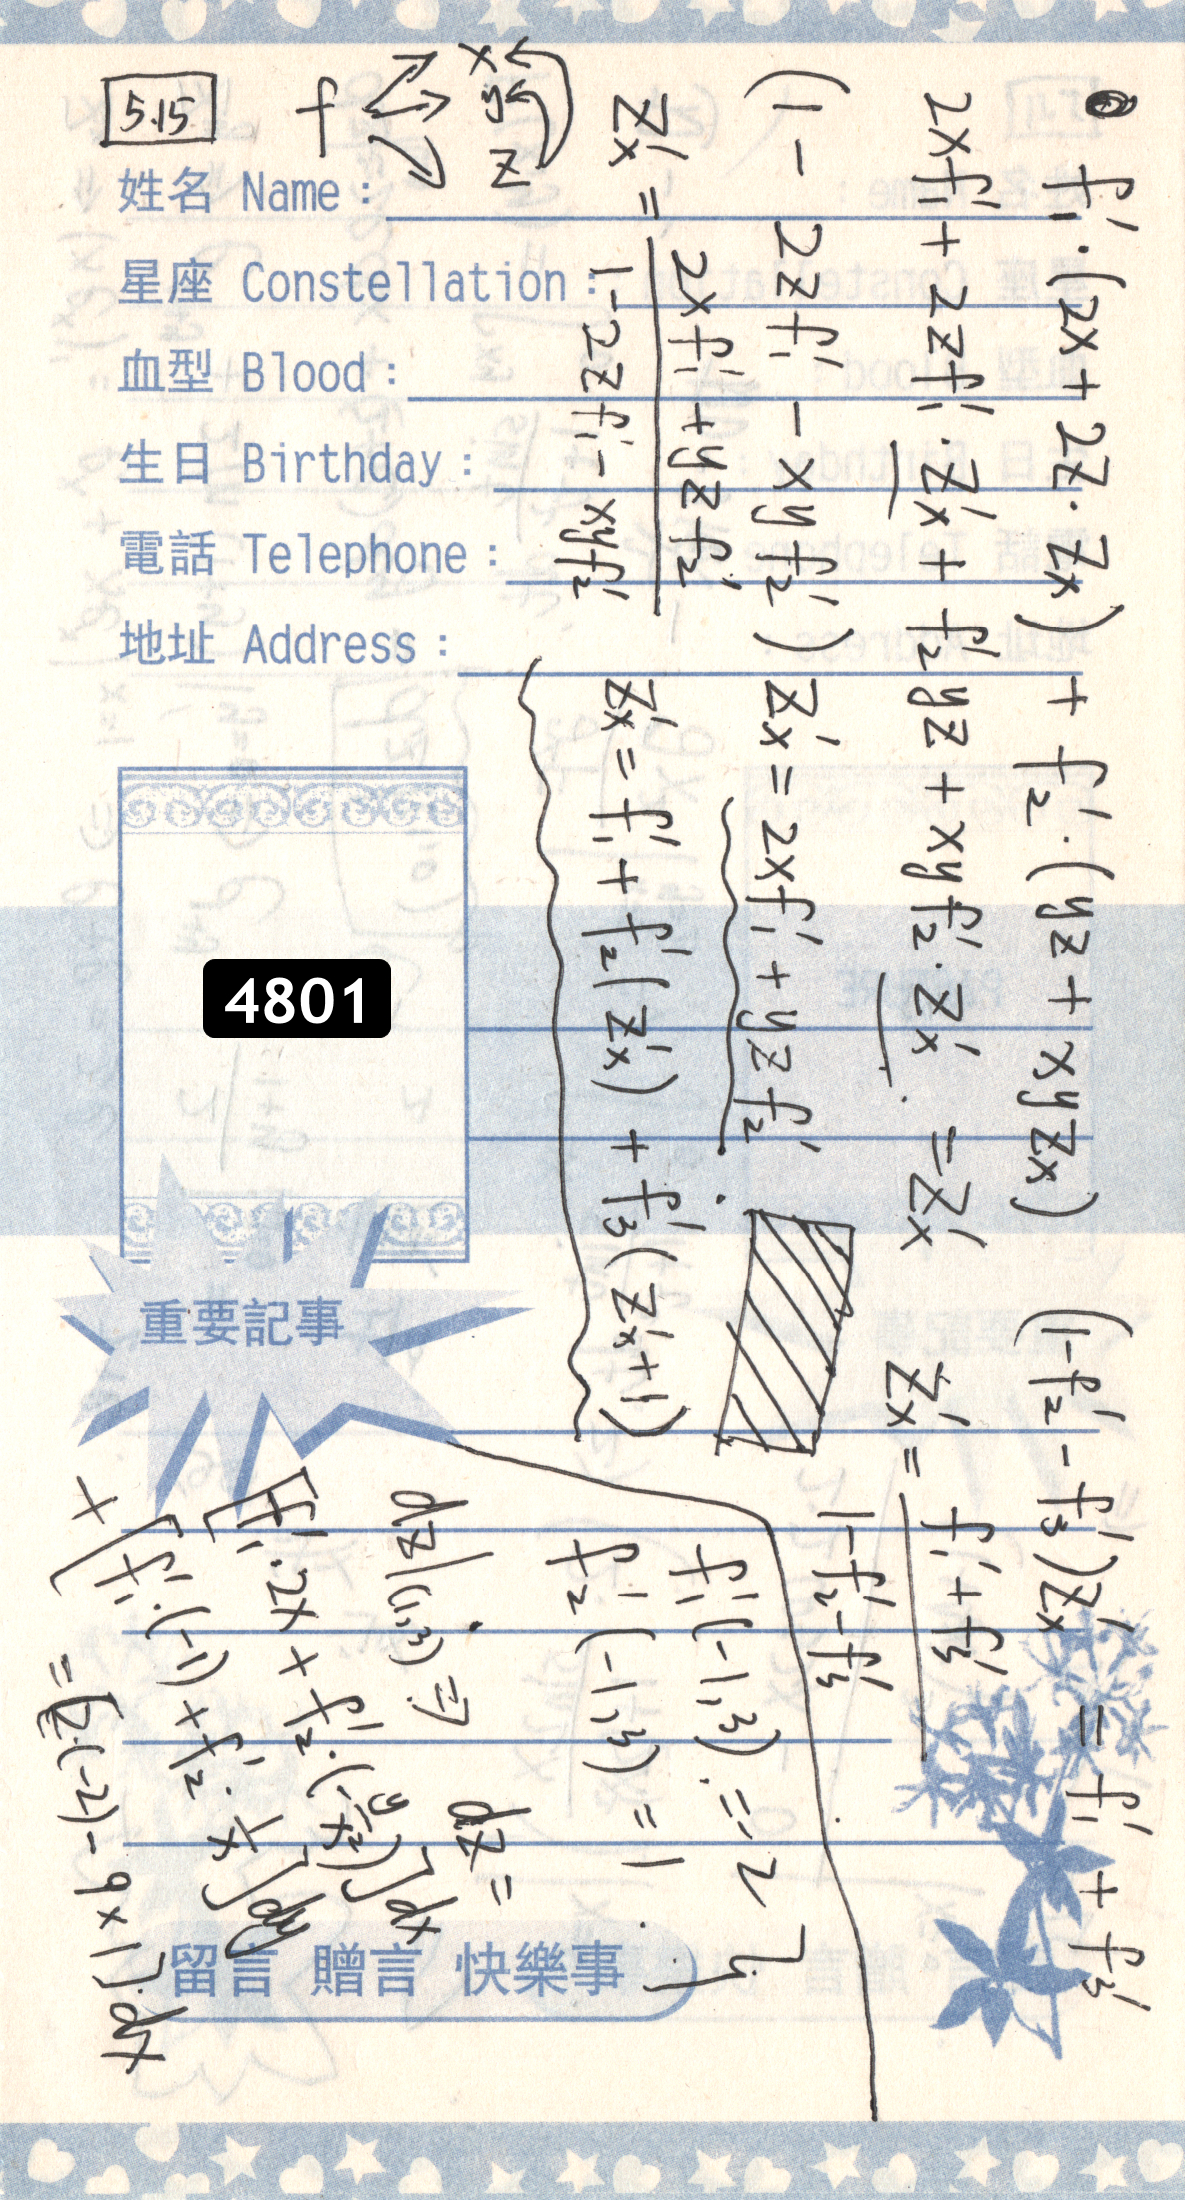 5.15
f
x
y
z
姓名 Name：
星座 Constellation：
血型 Blood：
生日 Birthday：
電話 Telephone：
地址 Address：
4801
重要記事
留言 贈言 快樂事
f₁'·(2x+2z·Zx)+f₂'·(yz+xyZx)
2xf₁'+2zf₁'·Zx'+f₂'yz+xyf₂'·Zx'=Zx'
(1-2zf₁'-xyf₂')Zx'=2xf₁'+yzf₂'
Zx'=(2xf₁'+yzf₂')/(1-2zf₁'-xyf₂')
Zx'=f₁'+f₂'(Zx')+f₃'(Zx'+1)
(1-f₂'-f₃')Zx'=f₁'+f₃'
Zx'=(f₁'+f₃')/(1-f₂'-f₃')
f₁'(-1,3)=-2
f₂'(-1,3)=1
dz|(1,3)⇒ dz=
[f₁'·2x+f₂'·(-y/x²)]dx
+[f₁'·(-1)+f₂'·1/x]dy
=[2·(-2)-9×1]·dx